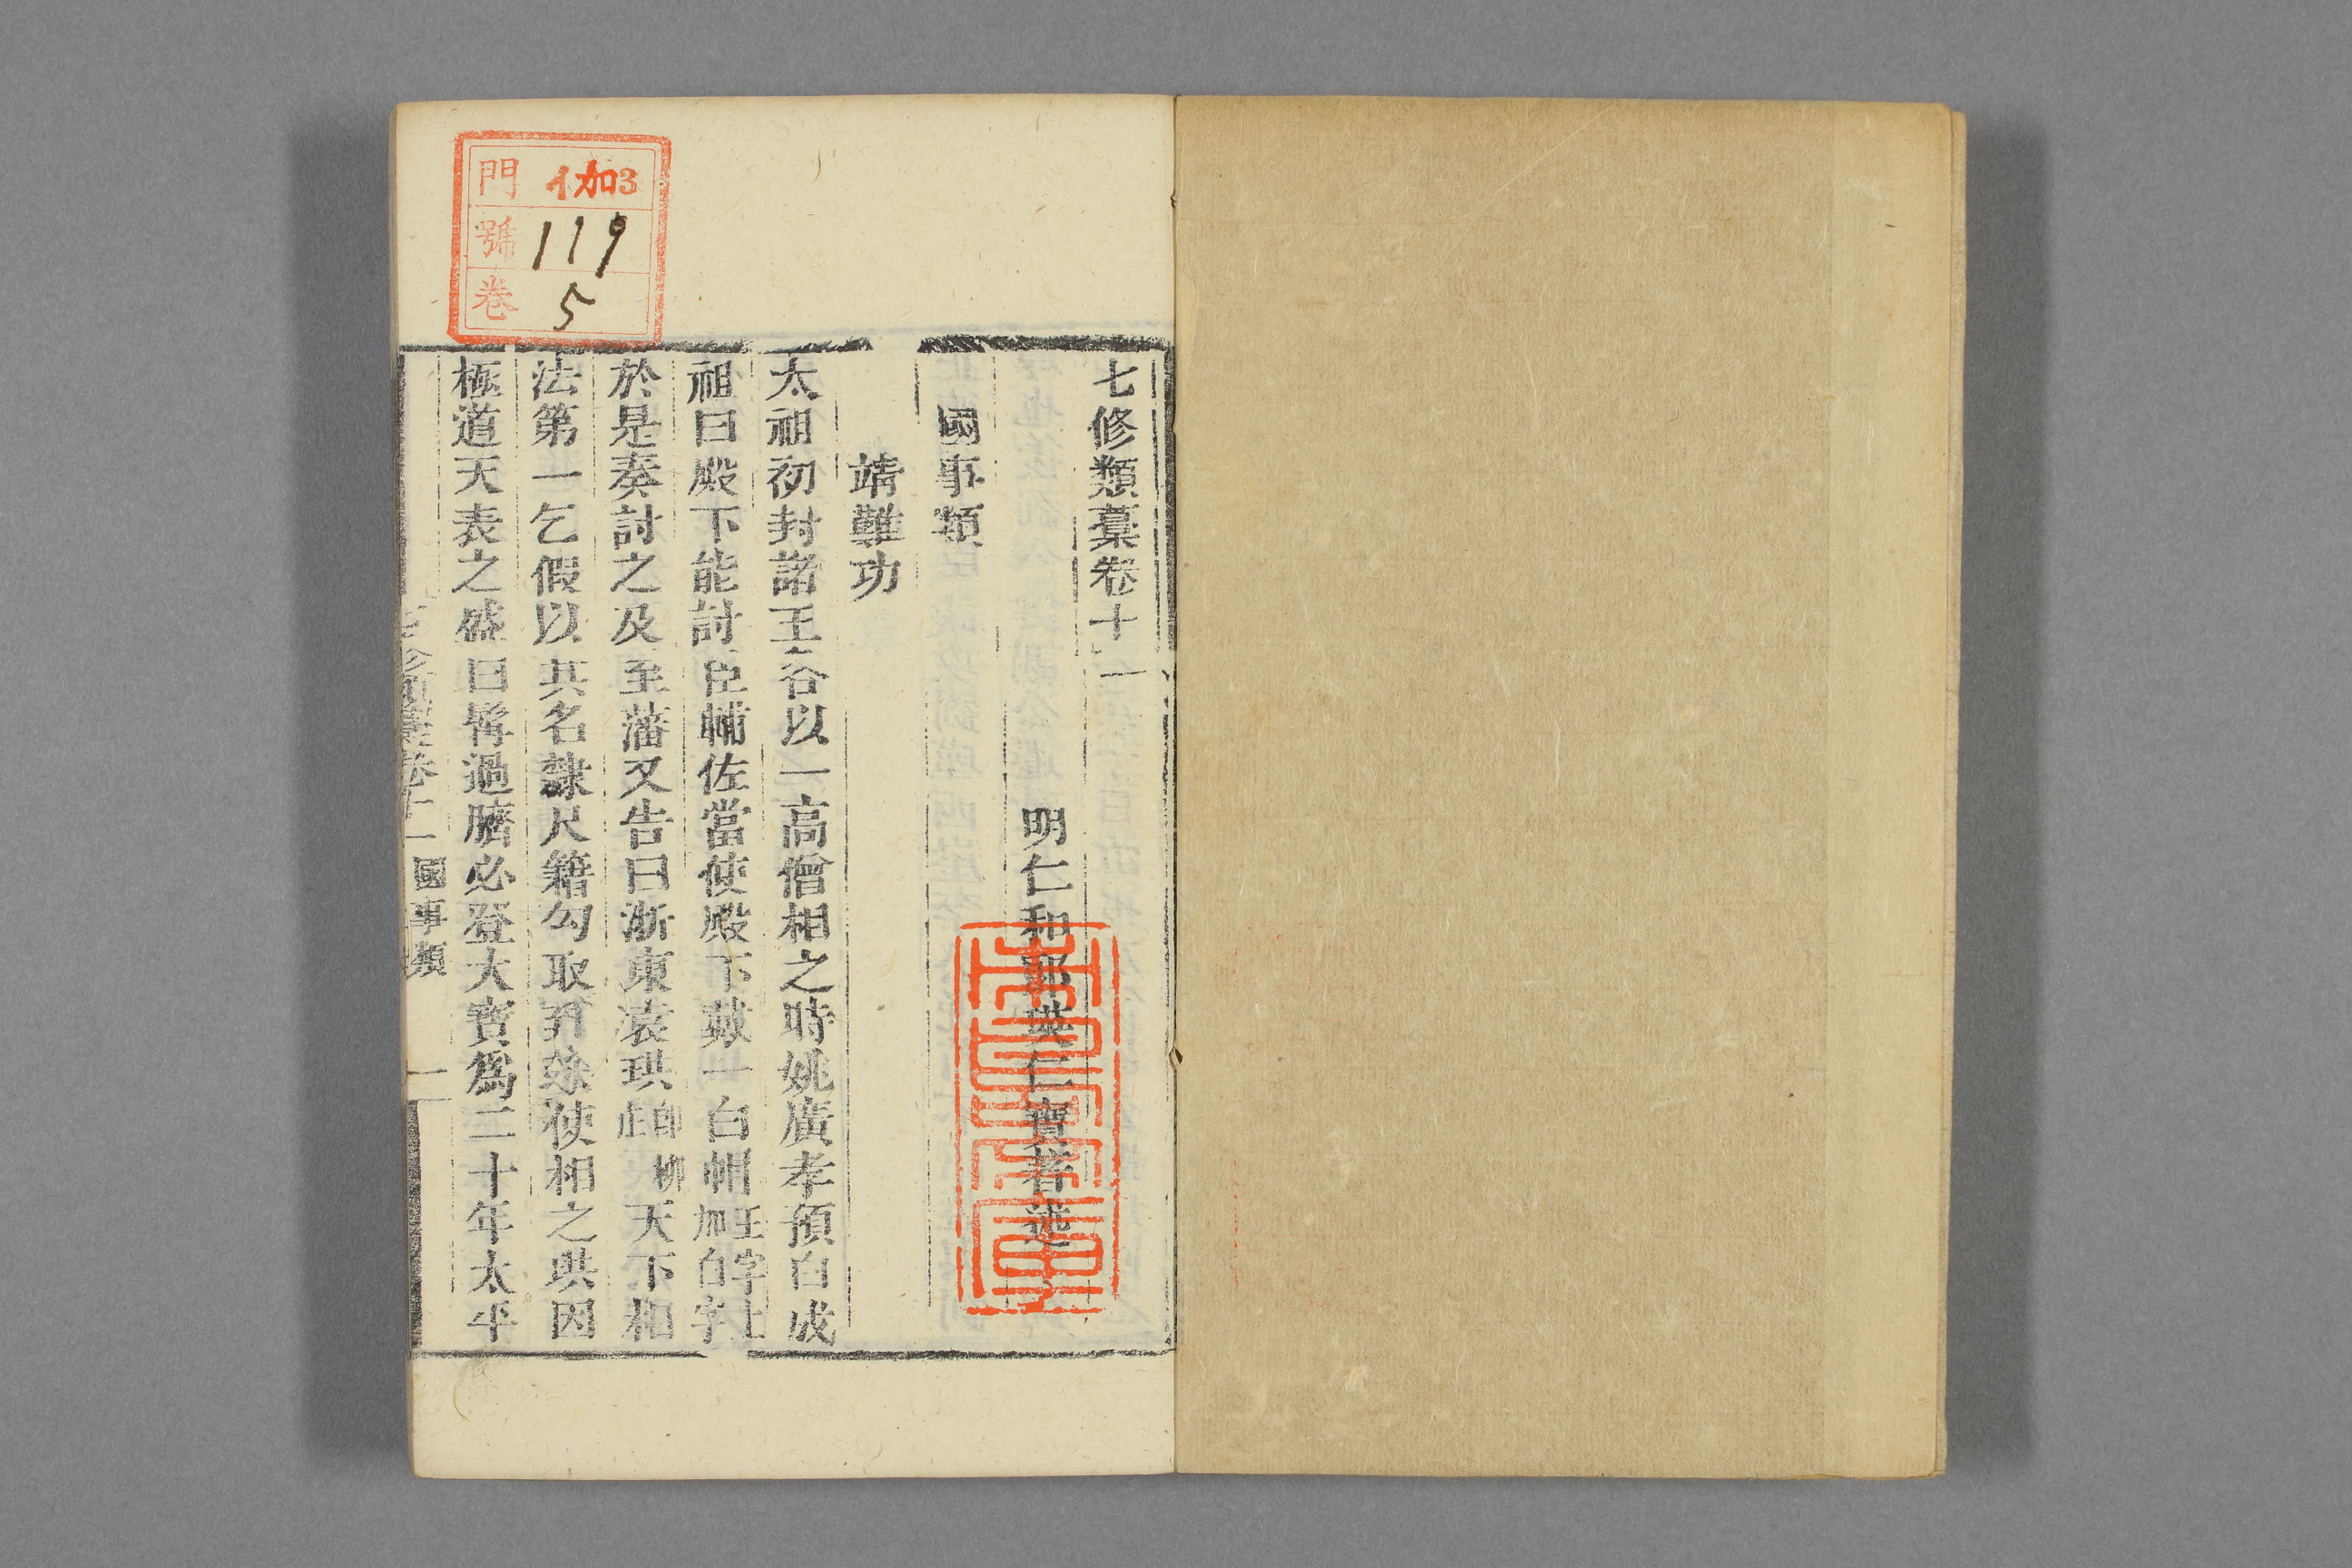 七修類藁卷十一
明仁和郎瑛仁寶著述
國事類
靖難功
太祖初封諸王各以一高僧相之時姚廣孝預白成
祖曰殿下能討臣輔佐當使殿下戴一白帽王字上加白字
於是奏討之及至藩又告曰浙東袁珙即柳庄天下相
法第一乞假以其名隸尺籍勾取到燕使相之珙因
極道天表之盛曰髯過臍必登大寶爲二十年太平
七修類藁卷十一 國事類 一
門 伽3
號 119
卷 5